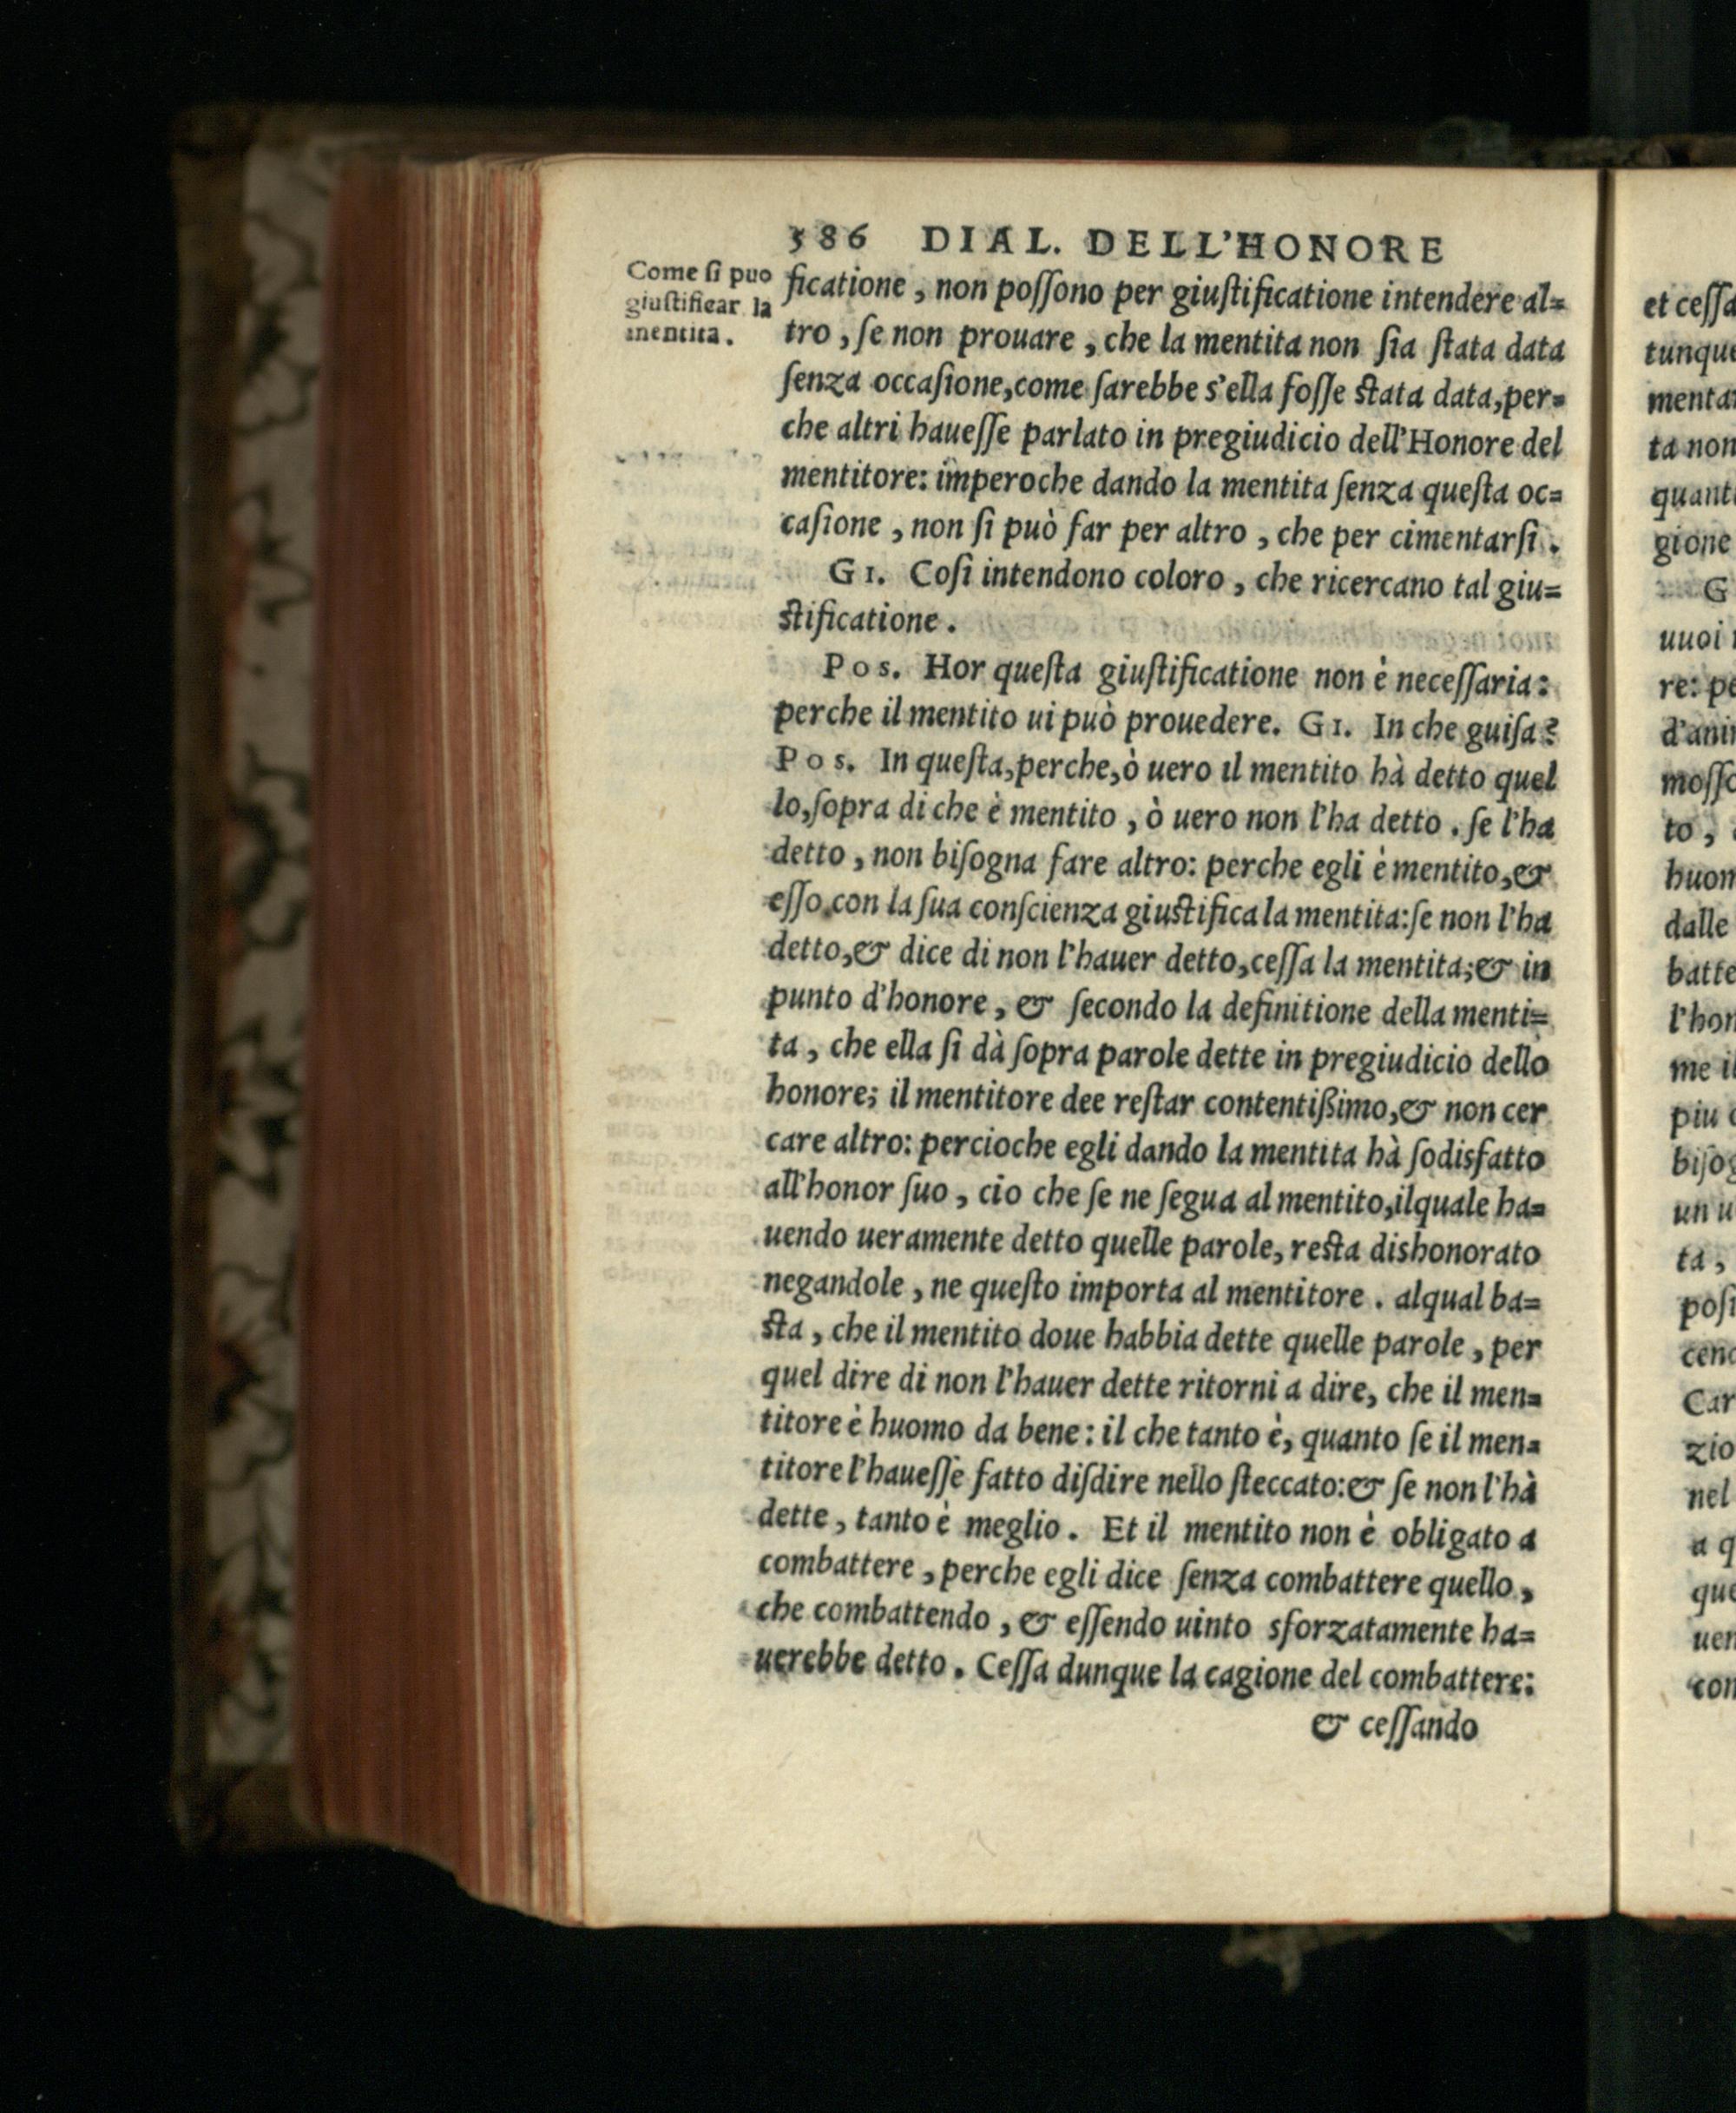 586 DIAL. DELL'HONORE
Come ſi puo
giuſtificar la
mentita.
ficatione, non poſſono per giuſtificatione intendere al=
tro, ſe non prouare, che la mentita non ſia ſtata data
ſenza occaſione, come ſarebbe s'ella foſſe ſtata data, per=
che altri haueſſe parlato in pregiudicio dell'Honore del
mentitore: imperoche dando la mentita ſenza queſta oc=
caſione, non ſi può far per altro, che per cimentarſi.
GI. Coſi intendono coloro, che ricercano tal giu=
ſtificatione.
Pos. Hor queſta giuſtificatione non è neceſſaria:
perche il mentito ui può prouedere. GI. In che guiſa?
Pos. In queſta, perche, ò uero il mentito hà detto quel
lo, ſopra di che è mentito, ò uero non l'ha detto. ſe l'ha
detto, non biſogna fare altro: perche egli è mentito, &
eſſo con la ſua conſcienza giuſtifica la mentita: ſe non l'ha
detto, & dice di non l'hauer detto, ceſſa la mentita; & in
punto d'honore, & ſecondo la definitione della menti=
ta, che ella ſi dà ſopra parole dette in pregiudicio dello
honore; il mentitore dee reſtar contentißimo, & non cer
care altro: percioche egli dando la mentita hà ſodisfatto
all'honor ſuo, cio che ſe ne ſegua al mentito, ilquale ha=
uendo ueramente detto quelle parole, reſta dishonorato
negandole, ne queſto importa al mentitore. alqual ba=
ſta, che il mentito doue habbia dette quelle parole, per
quel dire di non l'hauer dette ritorni a dire, che il men=
titore è huomo da bene: il che tanto è, quanto ſe il men=
titore l'haueſſe fatto diſdire nello ſteccato: & ſe non l'hà
dette, tanto è meglio. Et il mentito non è obligato a
combattere, perche egli dice ſenza combattere quello,
che combattendo, & eſſendo uinto sforzatamente ha=
uerebbe detto. Ceſſa dunque la cagione del combattere:
& ceſſando
et ceſſa
tunque
menta
ta non
quant
gione
G
uuoi
re: pe
d'ani
moſſo
to,
huom
dalle
batte
l'hon
me il
piu
biſog
un u
ta,
poſi
cend
Car
zio
nel
a q
que
uen
con